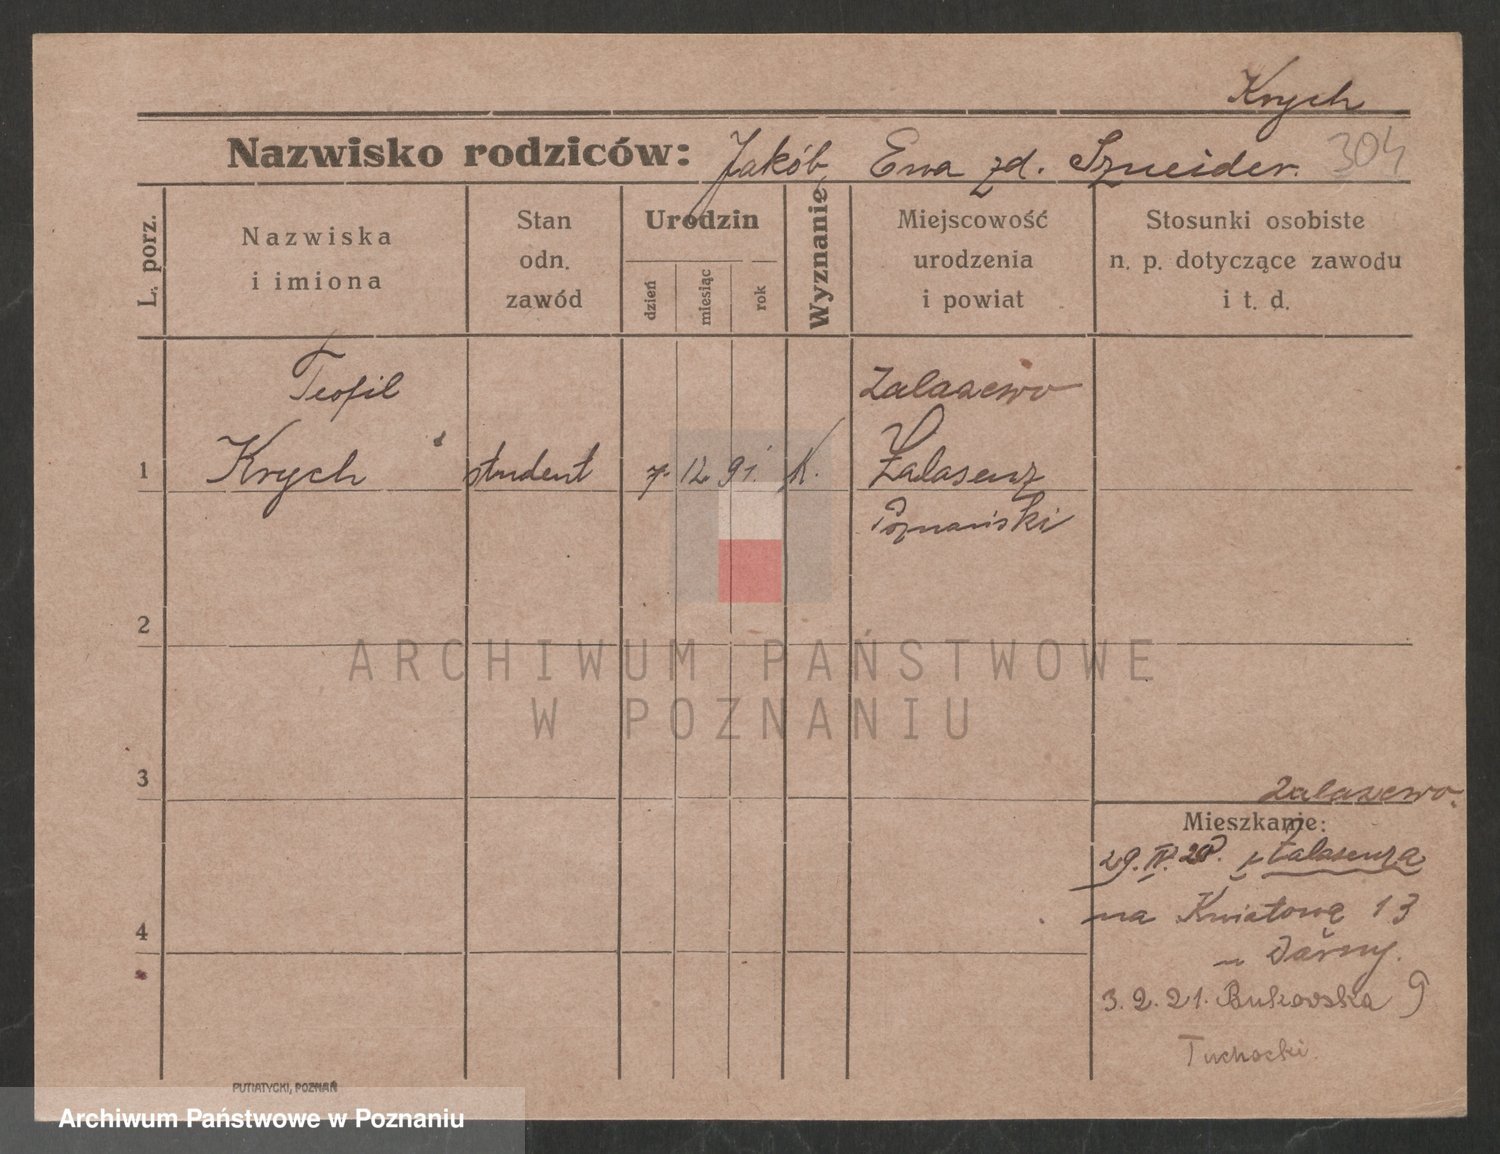 Krych
Nazwisko rodziców: Jakób, Ewa zd. Szneider. 304
L. porz.
Nazwiska
i imiona
Stan
odn.
zawód
Urodzin
dzień
miesiąc
rok
Wyznanie
Miejscowość
urodzenia
i powiat
Stosunki osobiste
n. p. dotyczące zawodu
i t. d.
Teofil
Zalasewo
1 Krych student 7. 12 91. K. Zalasenz
Poznański
2
3
Zalasewo.
Mieszkanie:
29. IV. 20. z Zalasenza
na Kwiatową 13
4
3. 2. 21. Bukowska 9
Tuchocki
PUTIATYCKI, POZNAŃ
ARCHIWUM PAŃSTWOWE
W POZNANIU
Archiwum Państwowe w Poznaniu